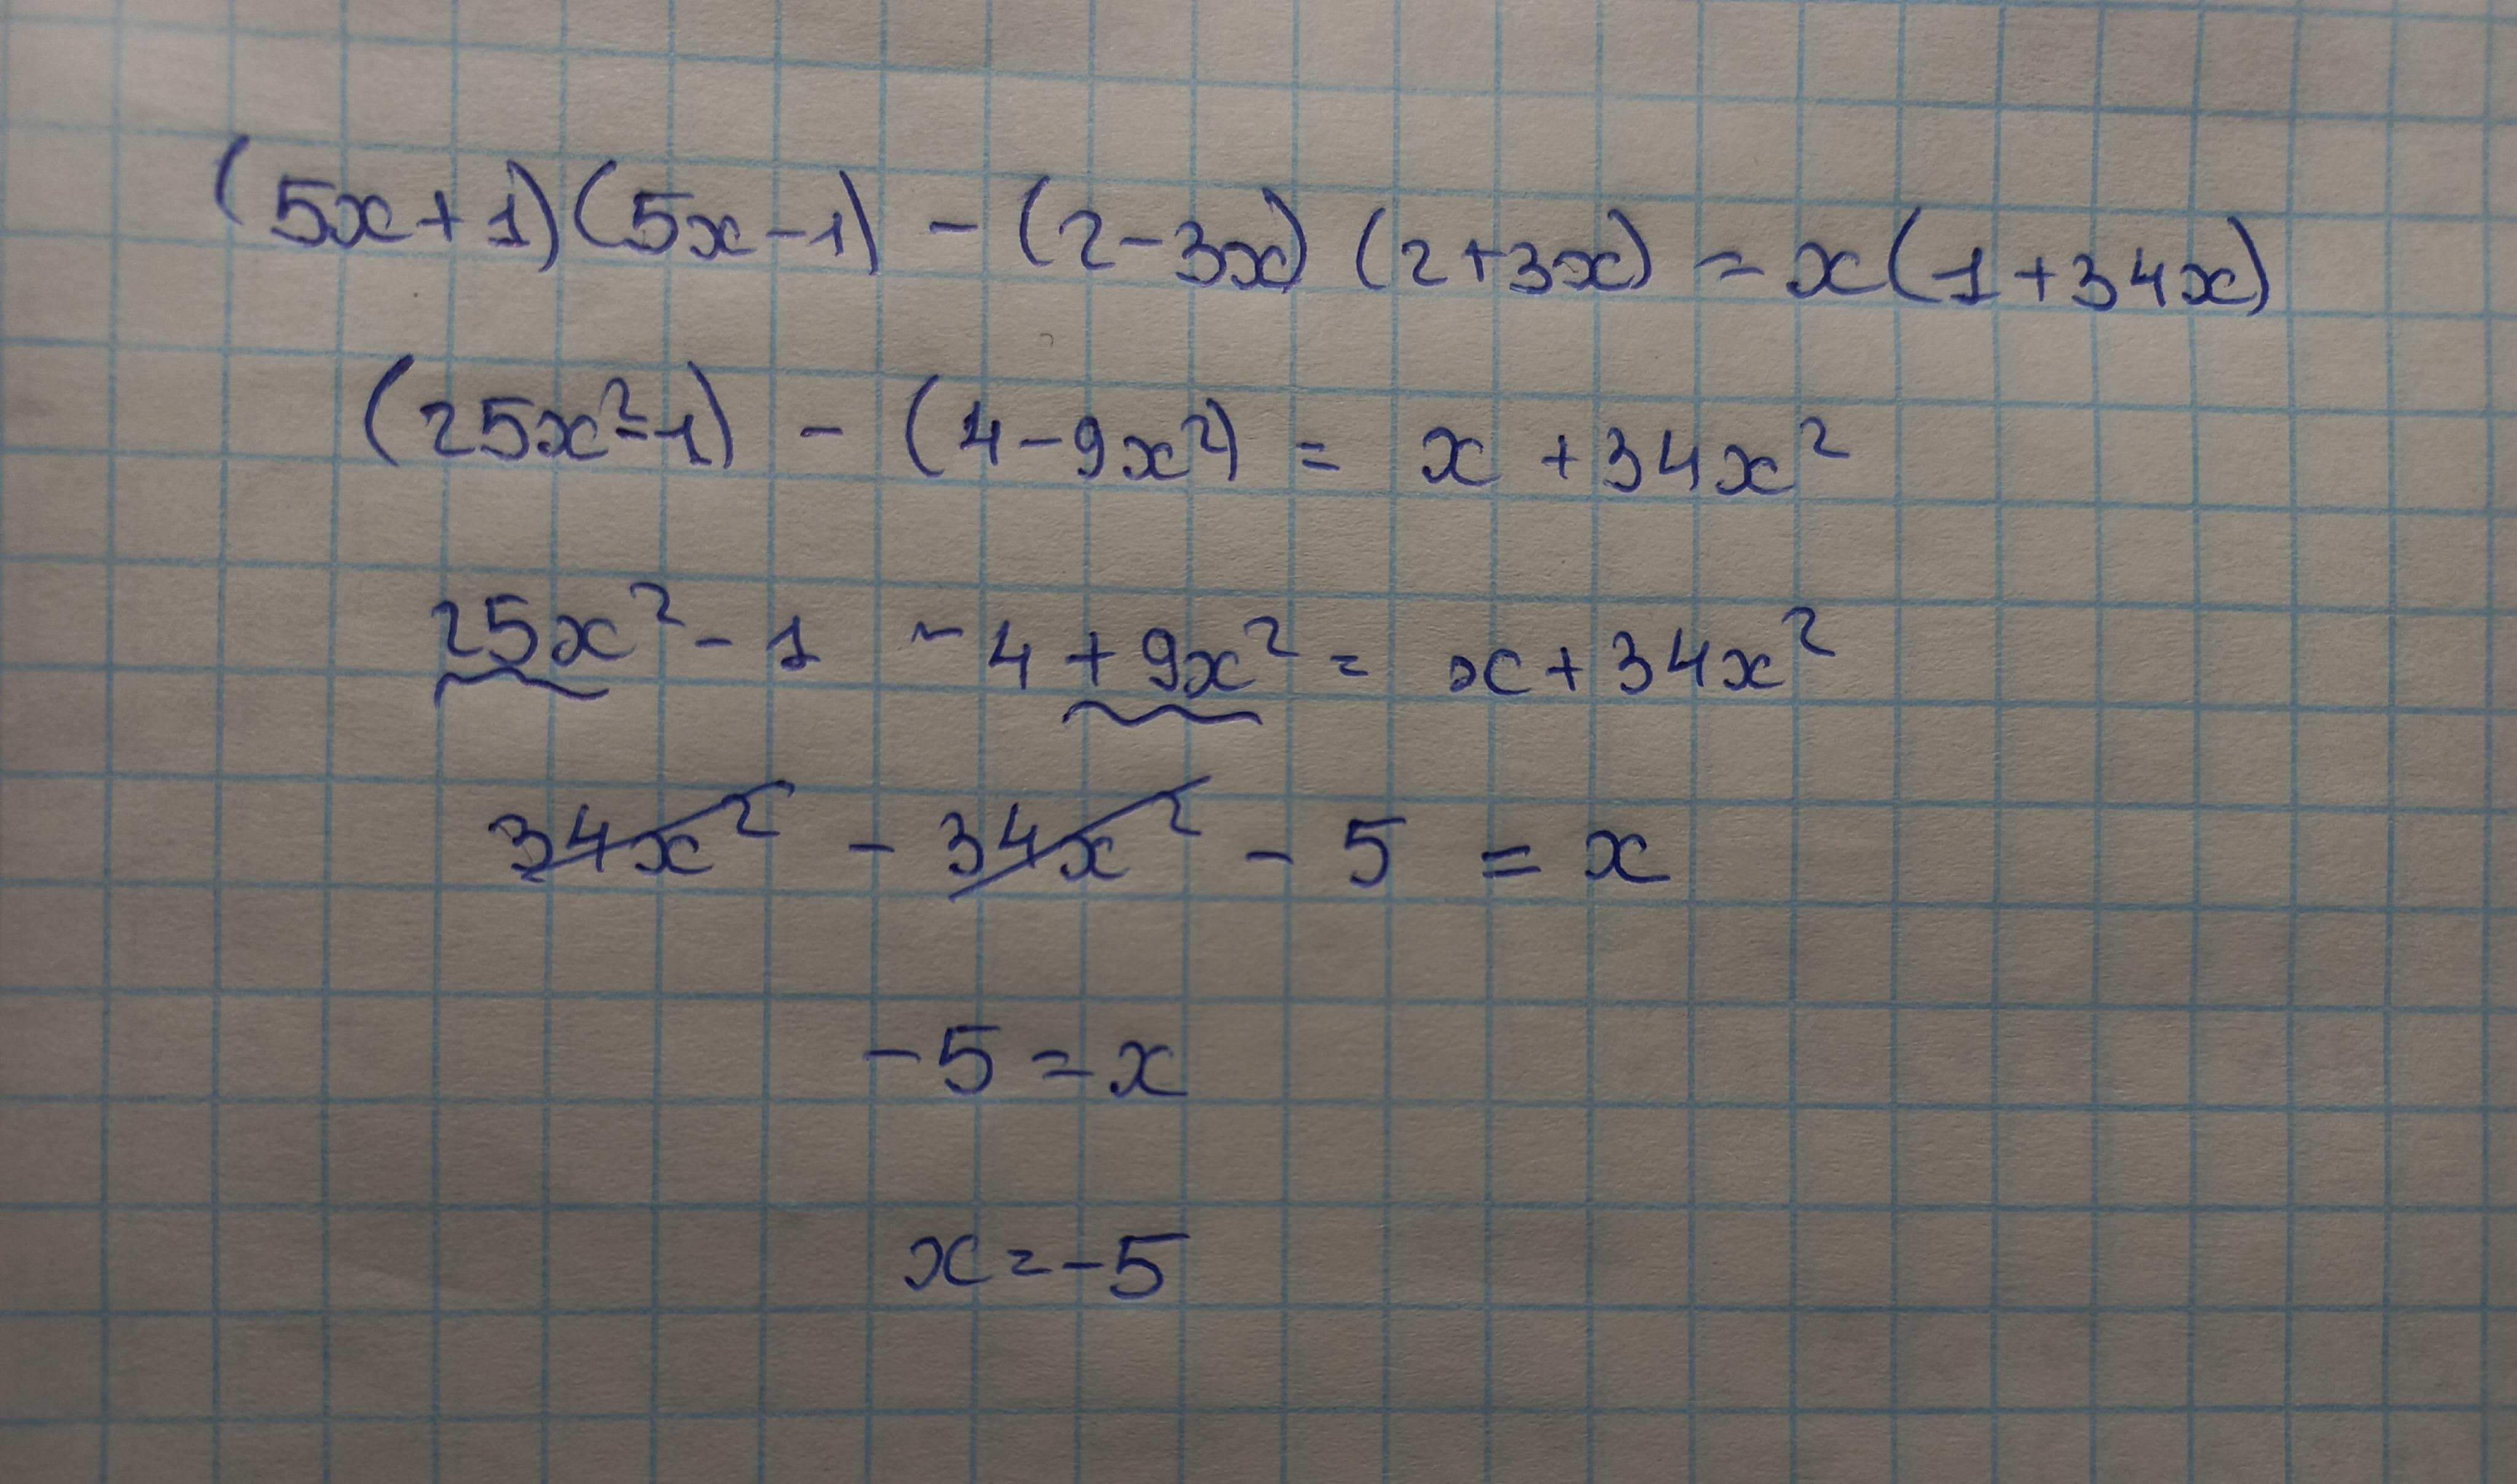 (5x+1)(5x-1) - (2-3x)(2+3x) = x(1+34x)
(25x²-1) - (4-9x²) = x + 34x²
25x² - 1 - 4 + 9x² = x + 34x²
34x² - 34x² - 5 = x
-5 = x
x = -5